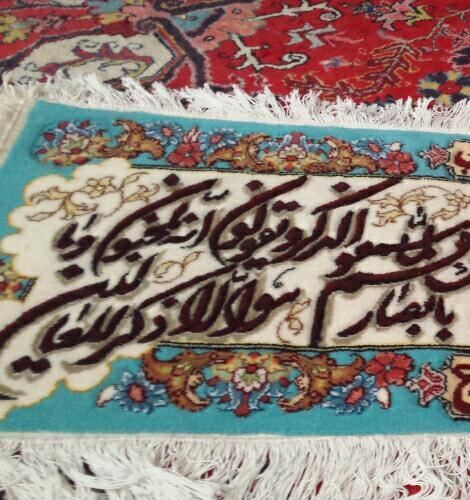 لما سمعوا الذكر و يقولون انه لمجنون و ما
بابصارهم هو الا ذكر للعالمين